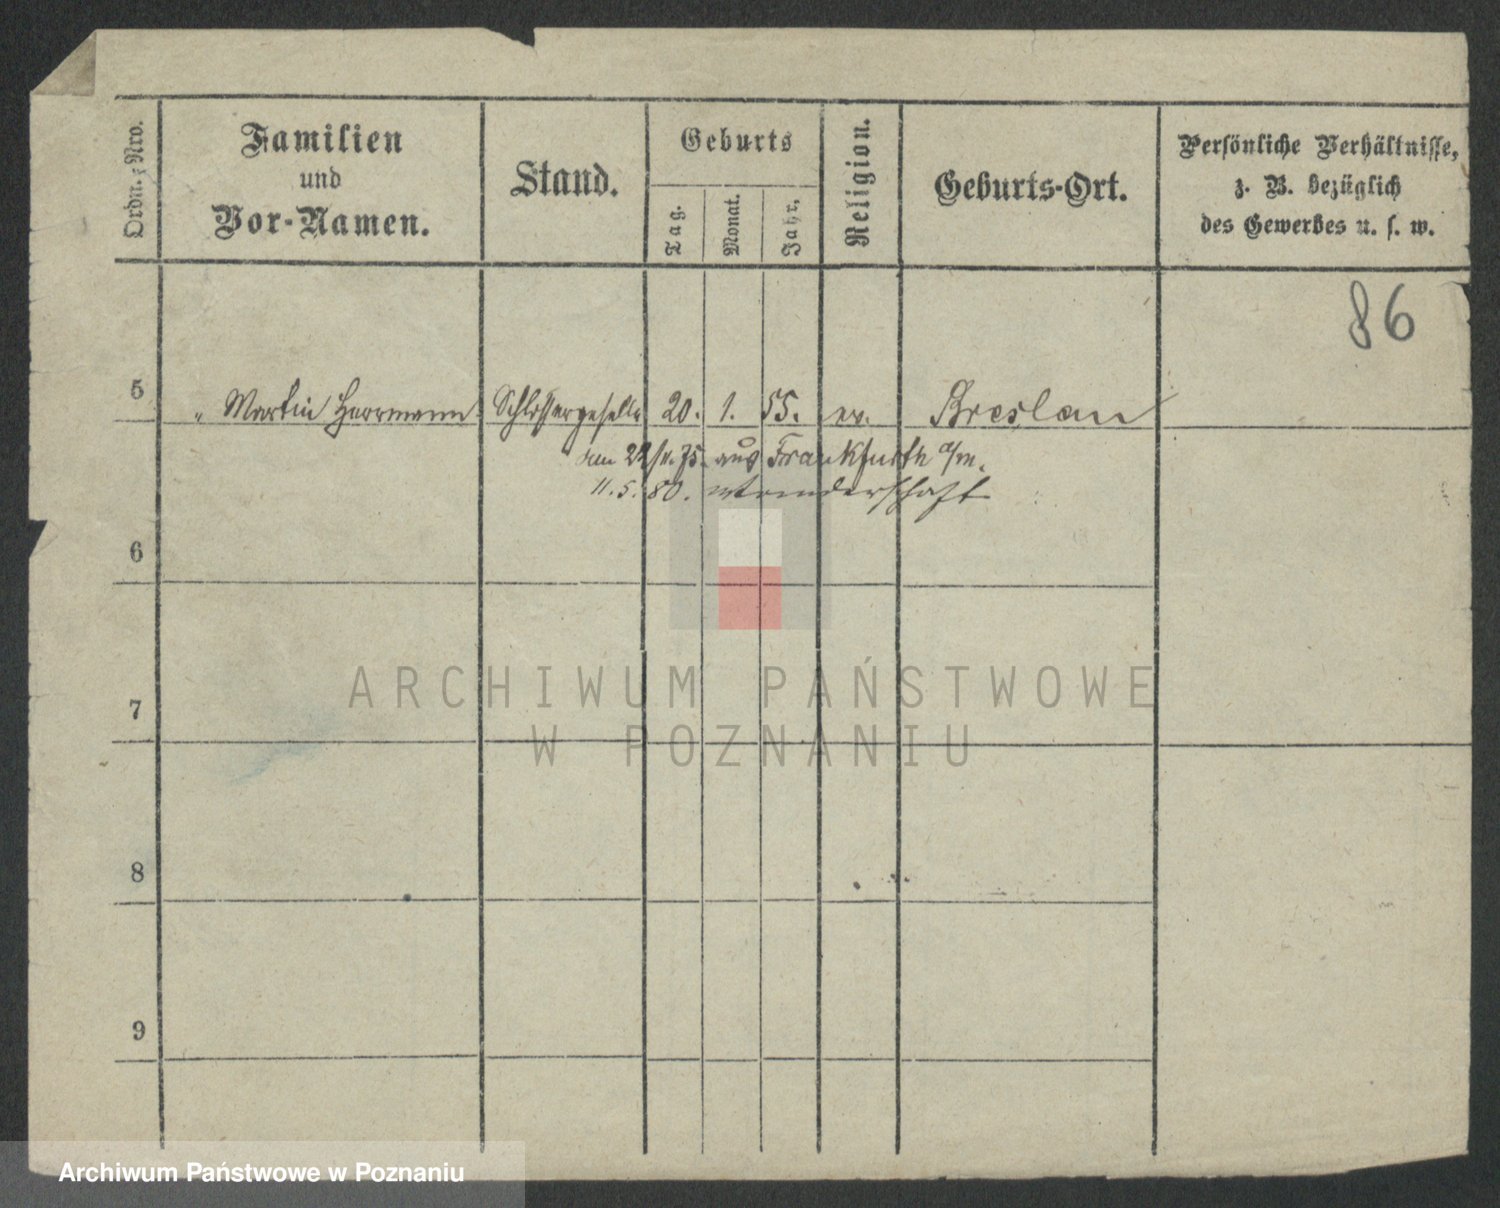 Ordn.-Nro.
Familien
und
Vor-Namen.
Stand.
Geburts
Tag.
Monat.
Jahr.
Religion.
Geburts-Ort.
Persönliche Verhältnisse,
z. B. bezüglich
des Gewerbes u. s. w.
86
5 " Martin Herrmann Schlossergeselle 20. 1. 55. ev. Breslau
aus Frankfurth a/m.
11.5.80. Wanderschaft
6
7
8
9
ARCHIWUM PAŃSTWOWE
W POZNANIU
Archiwum Państwowe w Poznaniu